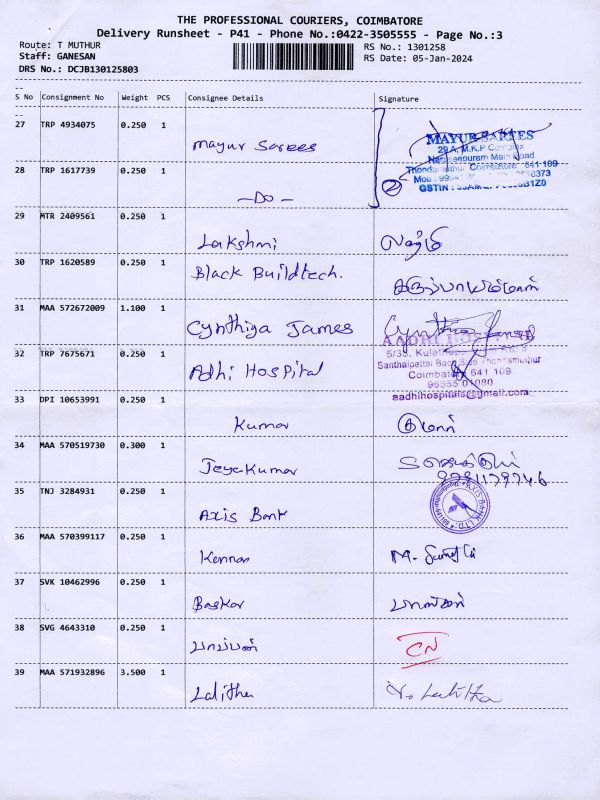 THE PROFESSIONAL COURIERS, COIMBATORE
Delivery Runsheet - P41 - Phone No.:0422-3505555 - Page No.:3
Route: T MUTHUR
RS No.: 1301258
Staff: GANESAN
RS Date: 05-Jan-2024
DRS No.: DCJB130125803
S No Consignment No Weight PCS Consignee Details Signature
27 TRP 4934075 0.250 1
Mayur Sarees
MAYUR SAREES
29 A, M.K.P Complex
Main Road
Coimbatore 641 109
28 TRP 1617739 0.250 1
-DO-
2
29 MTR 2409561 0.250 1
Lakshmi லக்ஷ்மி
30 TRP 1620589 0.250 1
Black Buildtech.
31 MAA 572672009 1.100 1
Cynthiya James Cynthia James
32 TRP 7675671 0.250 1
Adhi Hospital
AADHI HOSPITAL
Coimbatore 641 109
aadhihospitals@gmail.com
33 DPI 10653991 0.250 1
Kumar குமார்
34 MAA 570519730 0.300 1
Jeyakumar
35 TNJ 3284931 0.250 1
Axis Bank
AXIS BANK LTD.
36 MAA 570399117 0.250 1
Kannan
37 SVK 10462996 0.250 1
Baskar பாஸ்கர்
38 SVG 4643310 0.250 1
CN
39 MAA 571932896 3.500 1
Lalitha V. Lalitha